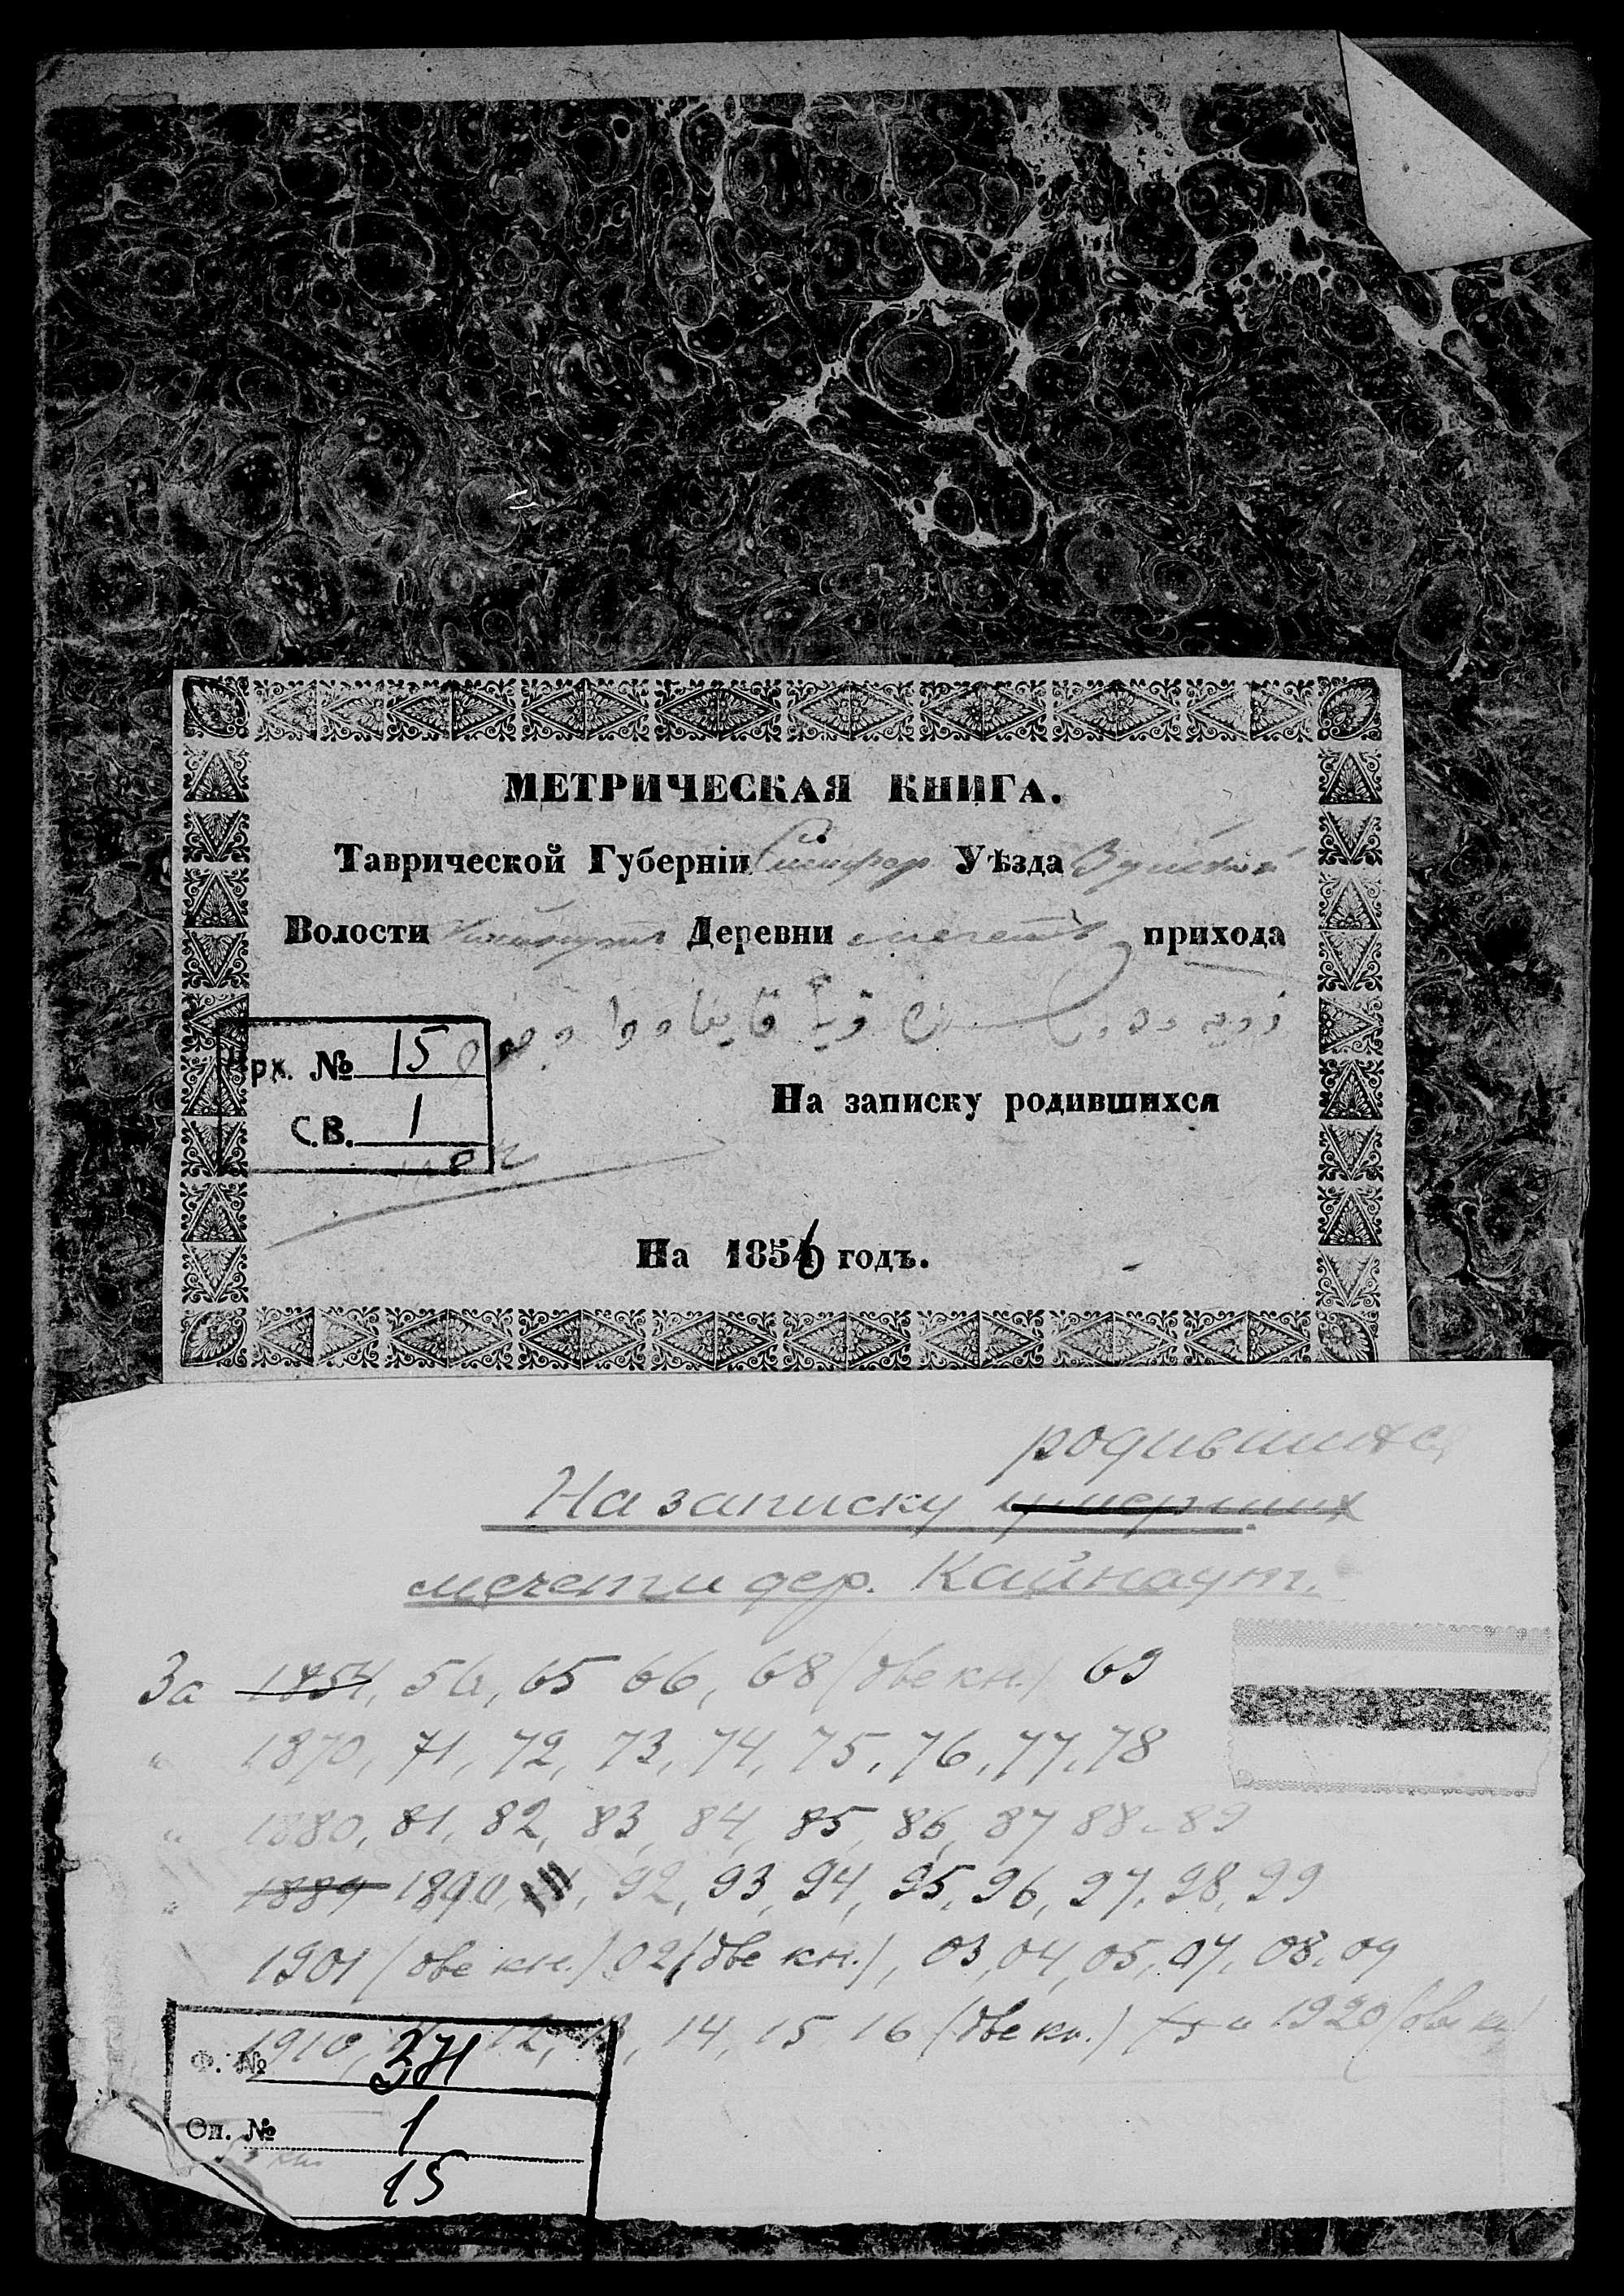 МЕТРИЧЕСКАЯ КНИГА.
Таврической Губерніи Симфер Уѣзда Зуйской
Волости Деревни мечеть прихода
Арх. № 15
С.В. 1
На записку родившихся
На 1856 годъ.
родившихся
На записку умерших
мечети дер. Кайнаут.
За 1854, 56, 65 66, 68 (две кн.) 69
" 1870, 71, 72, 73, 74, 75, 76, 77, 78
" 1880, 81, 82, 83, 84, 85, 86, 87 88. 89
" 1889 1890, 92, 93, 94, 95, 96, 97, 98, 99
1901 (две кн.) 02 (две кн.), 03, 04, 05, 07, 08, 09
1910, 12, 13, 14, 15 16 (две кн.) и 1920 (две кн)
Ф. № 371
Оп. № 1
15